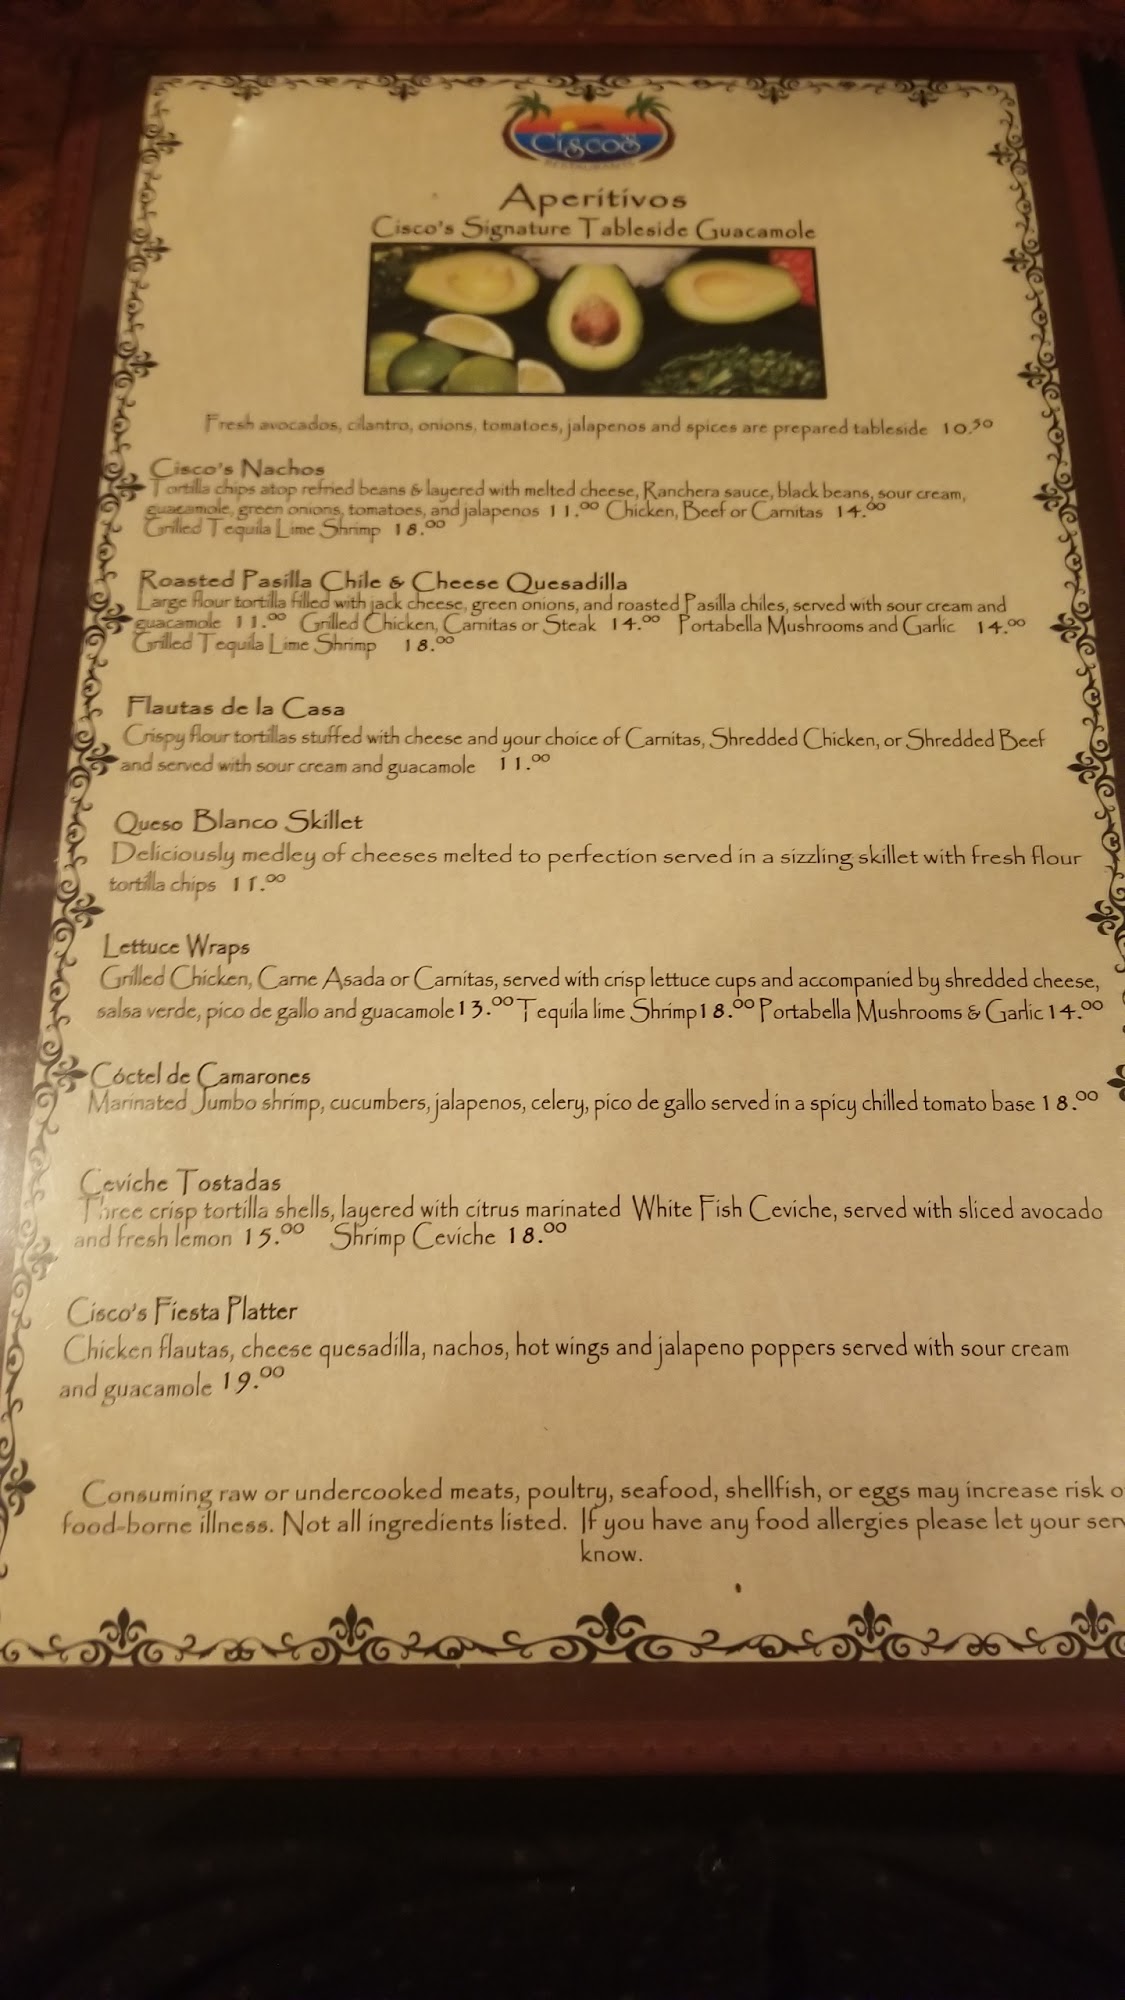 Cisco's
RESTAURANTS
Aperitivos
Cisco's Signature Tableside Guacamole
Fresh avocados, cilantro, onions, tomatoes, jalapenos and spices are prepared tableside 10.50
Cisco's Nachos
Tortilla chips atop refried beans & layered with melted cheese, Ranchera sauce, black beans, sour cream,
guacamole, green onions, tomatoes, and jalapenos 11.00 Chicken, Beef or Carnitas 14.00
Grilled Tequila Lime Shrimp 18.00
Roasted Pasilla Chile & Cheese Quesadilla
Large flour tortilla filled with jack cheese, green onions, and roasted Pasilla chiles, served with sour cream and
guacamole 11.00 Grilled Chicken, Carnitas or Steak 14.00 Portabella Mushrooms and Garlic 14.00
Grilled Tequila Lime Shrimp 18.00
Flautas de la Casa
Crispy flour tortillas stuffed with cheese and your choice of Carnitas, Shredded Chicken, or Shredded Beef
and served with sour cream and guacamole 11.00
Queso Blanco Skillet
Deliciously medley of cheeses melted to perfection served in a sizzling skillet with fresh flour
tortilla chips 11.00
Lettuce Wraps
Grilled Chicken, Carne Asada or Carnitas, served with crisp lettuce cups and accompanied by shredded cheese,
salsa verde, pico de gallo and guacamole 13.00 Tequila lime Shrimp 18.00 Portabella Mushrooms & Garlic 14.00
Cóctel de Camarones
Marinated Jumbo shrimp, cucumbers, jalapenos, celery, pico de gallo served in a spicy chilled tomato base 18.00
Ceviche Tostadas
Three crisp tortilla shells, layered with citrus marinated White Fish Ceviche, served with sliced avocado
and fresh lemon 15.00 Shrimp Ceviche 18.00
Cisco's Fiesta Platter
Chicken flautas, cheese quesadilla, nachos, hot wings and jalapeno poppers served with sour cream
and guacamole 19.00
Consuming raw or undercooked meats, poultry, seafood, shellfish, or eggs may increase risk o
food-borne illness. Not all ingredients listed. If you have any food allergies please let your ser
know.